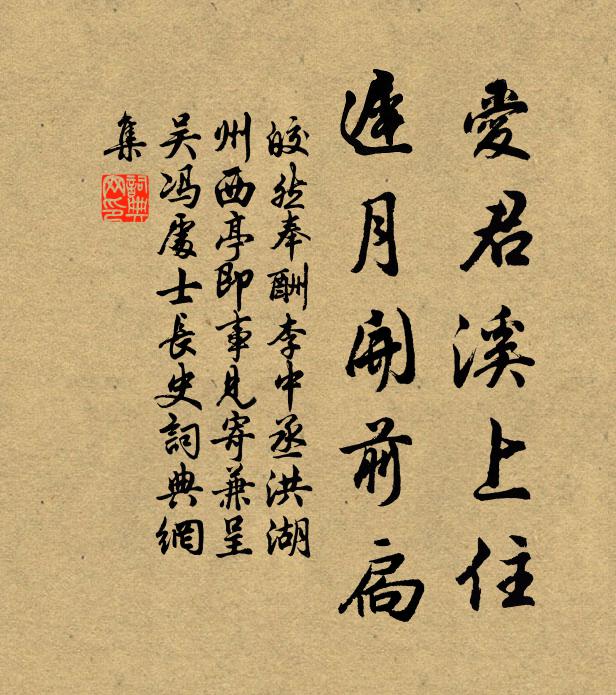 愛君溪上住
遲月開前扃
皎然奉酬李中丞洪湖
州西亭即事見寄兼呈
吴馮處士長史詞典網
集
詞典網印